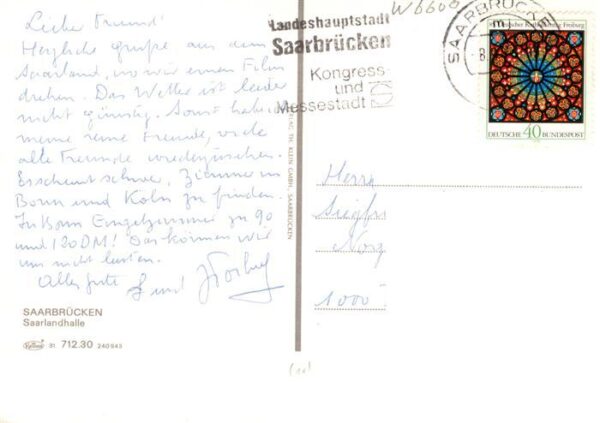 Liebe Freunde!
Herzliche Grüße aus dem
Saarland, wo wir einen Film
drehen. Das Wetter ist leider
nicht günstig. Sonst habe
meine reine Freude, viele
alte Freunde wiederzusehen.
Es scheint schwer, Zimmer in
Bonn und Köln zu finden.
In Bonn Einzelzimmer zu 90
und 120 DM! Das können wir
uns nicht leisten.
Alles Gute
SAARBRÜCKEN
Saarlandhalle
31 712.30 240 843
VERLAG TH. KLEIN GMBH, SAARBRÜCKEN
W6600
Landeshauptstadt
Saarbrücken
Kongress-
und
Messestadt
SAARBRÜCKEN
m
Deutscher Katholikentag Freiburg
DEUTSCHE 40 BUNDESPOST
Herrn
Siegfr
Norg
1000